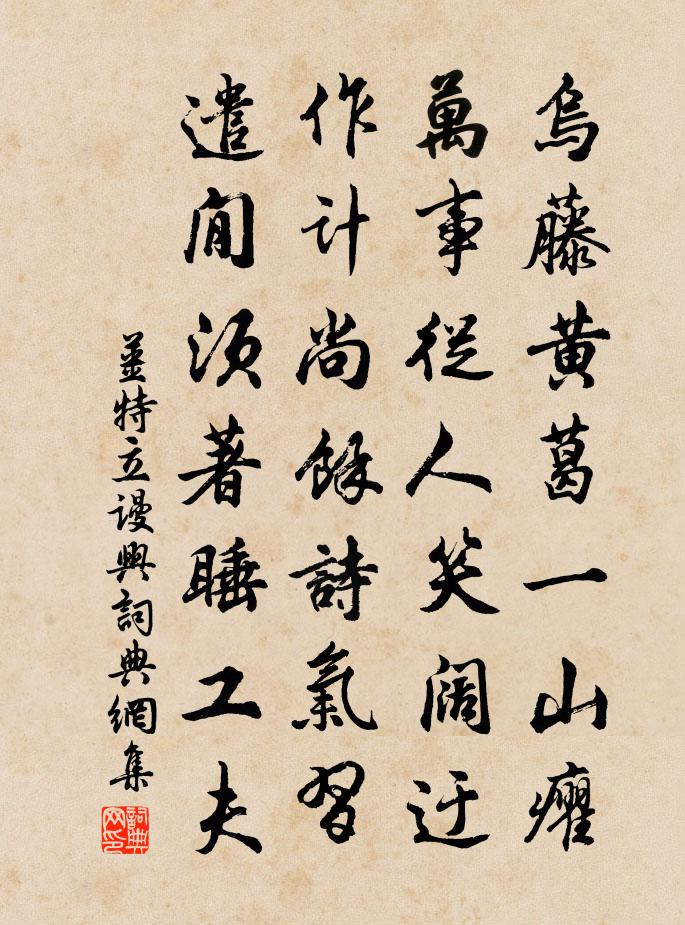 烏藤黃葛一山癯
萬事從人笑闊迂
作計尚餘詩氣習
遣閒須著睡工夫
姜特立謾興詞典網集
詞典網印